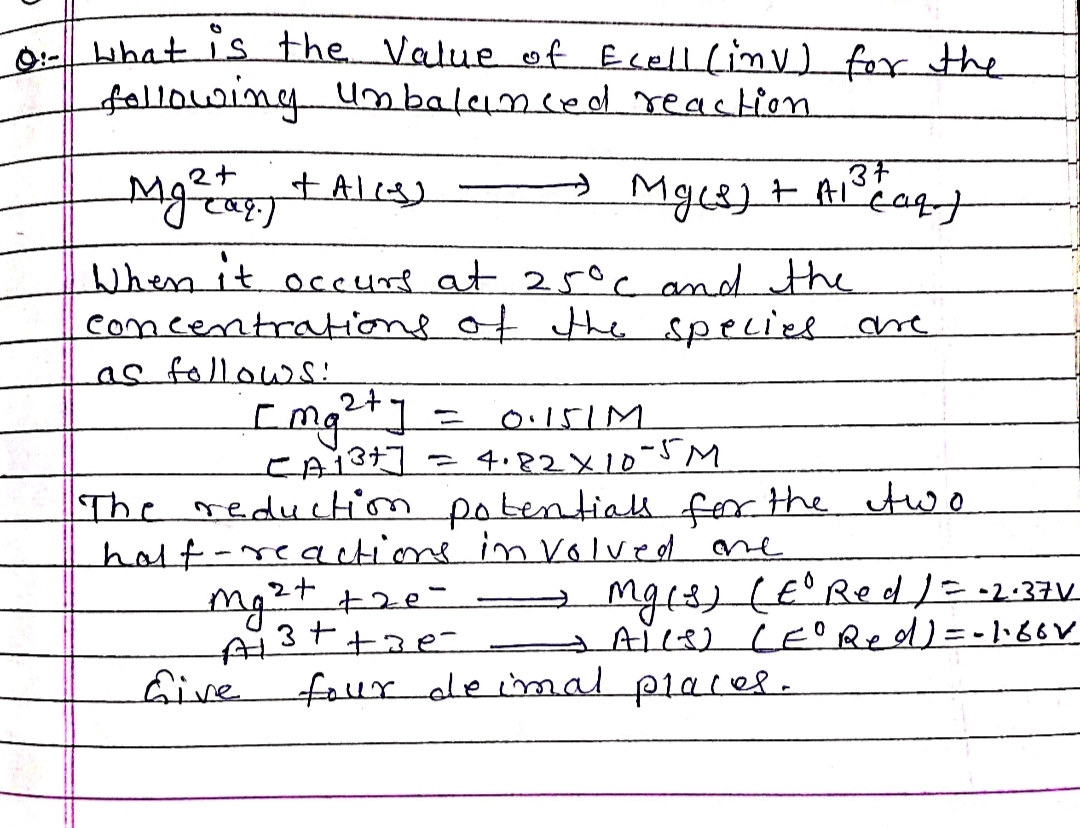 Q:- What is the Value of Ecell (inv) for the
following Unbalanced reaction
Mg²⁺(aq.) + Al(s) → Mg(s) + Al³⁺(aq.)
When it occurs at 25°C and the
concentrations of the species are
as follows:
[Mg²⁺] = 0.151M
[Al³⁺] = 4.82 × 10⁻⁵ M
The reduction potentials for the two
half-reactions involved are
Mg²⁺ + 2e⁻ → Mg(s) (E⁰ Red) = -2.37V
Al³⁺ + 3e⁻ → Al(s) (E⁰ Red) = -1.66V
Give four deimal places.